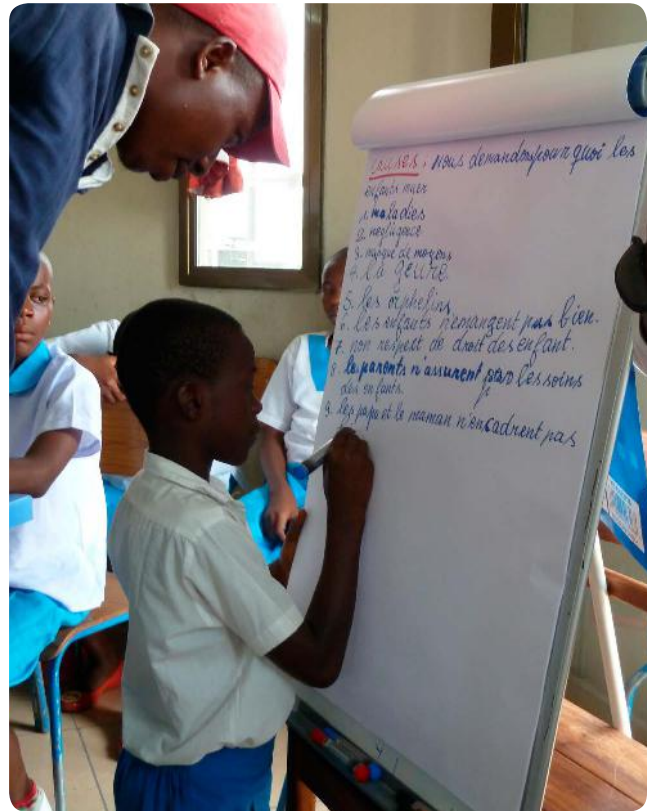 causes : Nous demandons pour quoi les
enfants meur
1. maladies
2. negligence
3. manque de moyens
4. la geurre
5. les orphelins
6. les enfants nemangent pas bien.
7. non respect de droit des enfant.
8. les parents n'assurent pas les soins
des enfants.
9. les papa et le maman n'encadrent pas